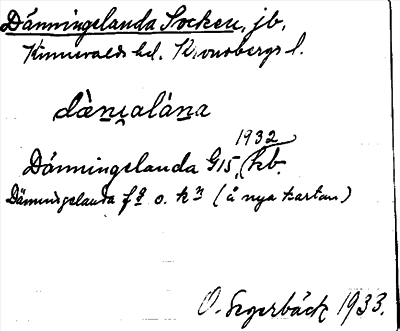 Dänningelanda Socken, jb,
Kinnevalds hd. Kronobergs l.
dàṉi̯alána
1932
Dänningelanda G15, kb.
Dänningelanda fg o. kn (å nya kartan)
O. Segerbäck 1933.